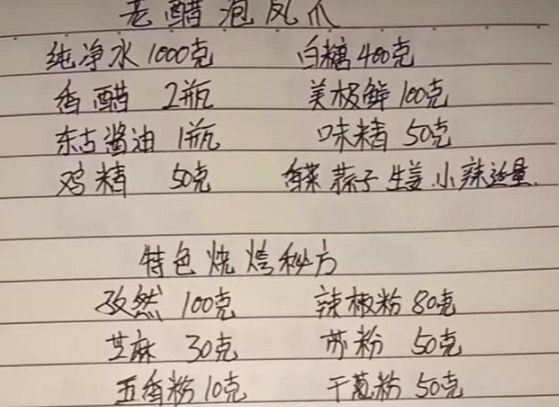 老醋泡凤爪
纯净水 1000克 白糖 400克
香醋 2瓶 美极鲜 100克
东古酱油 1瓶 味精 50克
鸡精 50克 香菜 蒜子 生姜 小辣适量
特色烧烤秘方
孜然 100克 辣椒粉 80克
芝麻 30克 苏粉 50克
五香粉 10克 干葱粉 50克